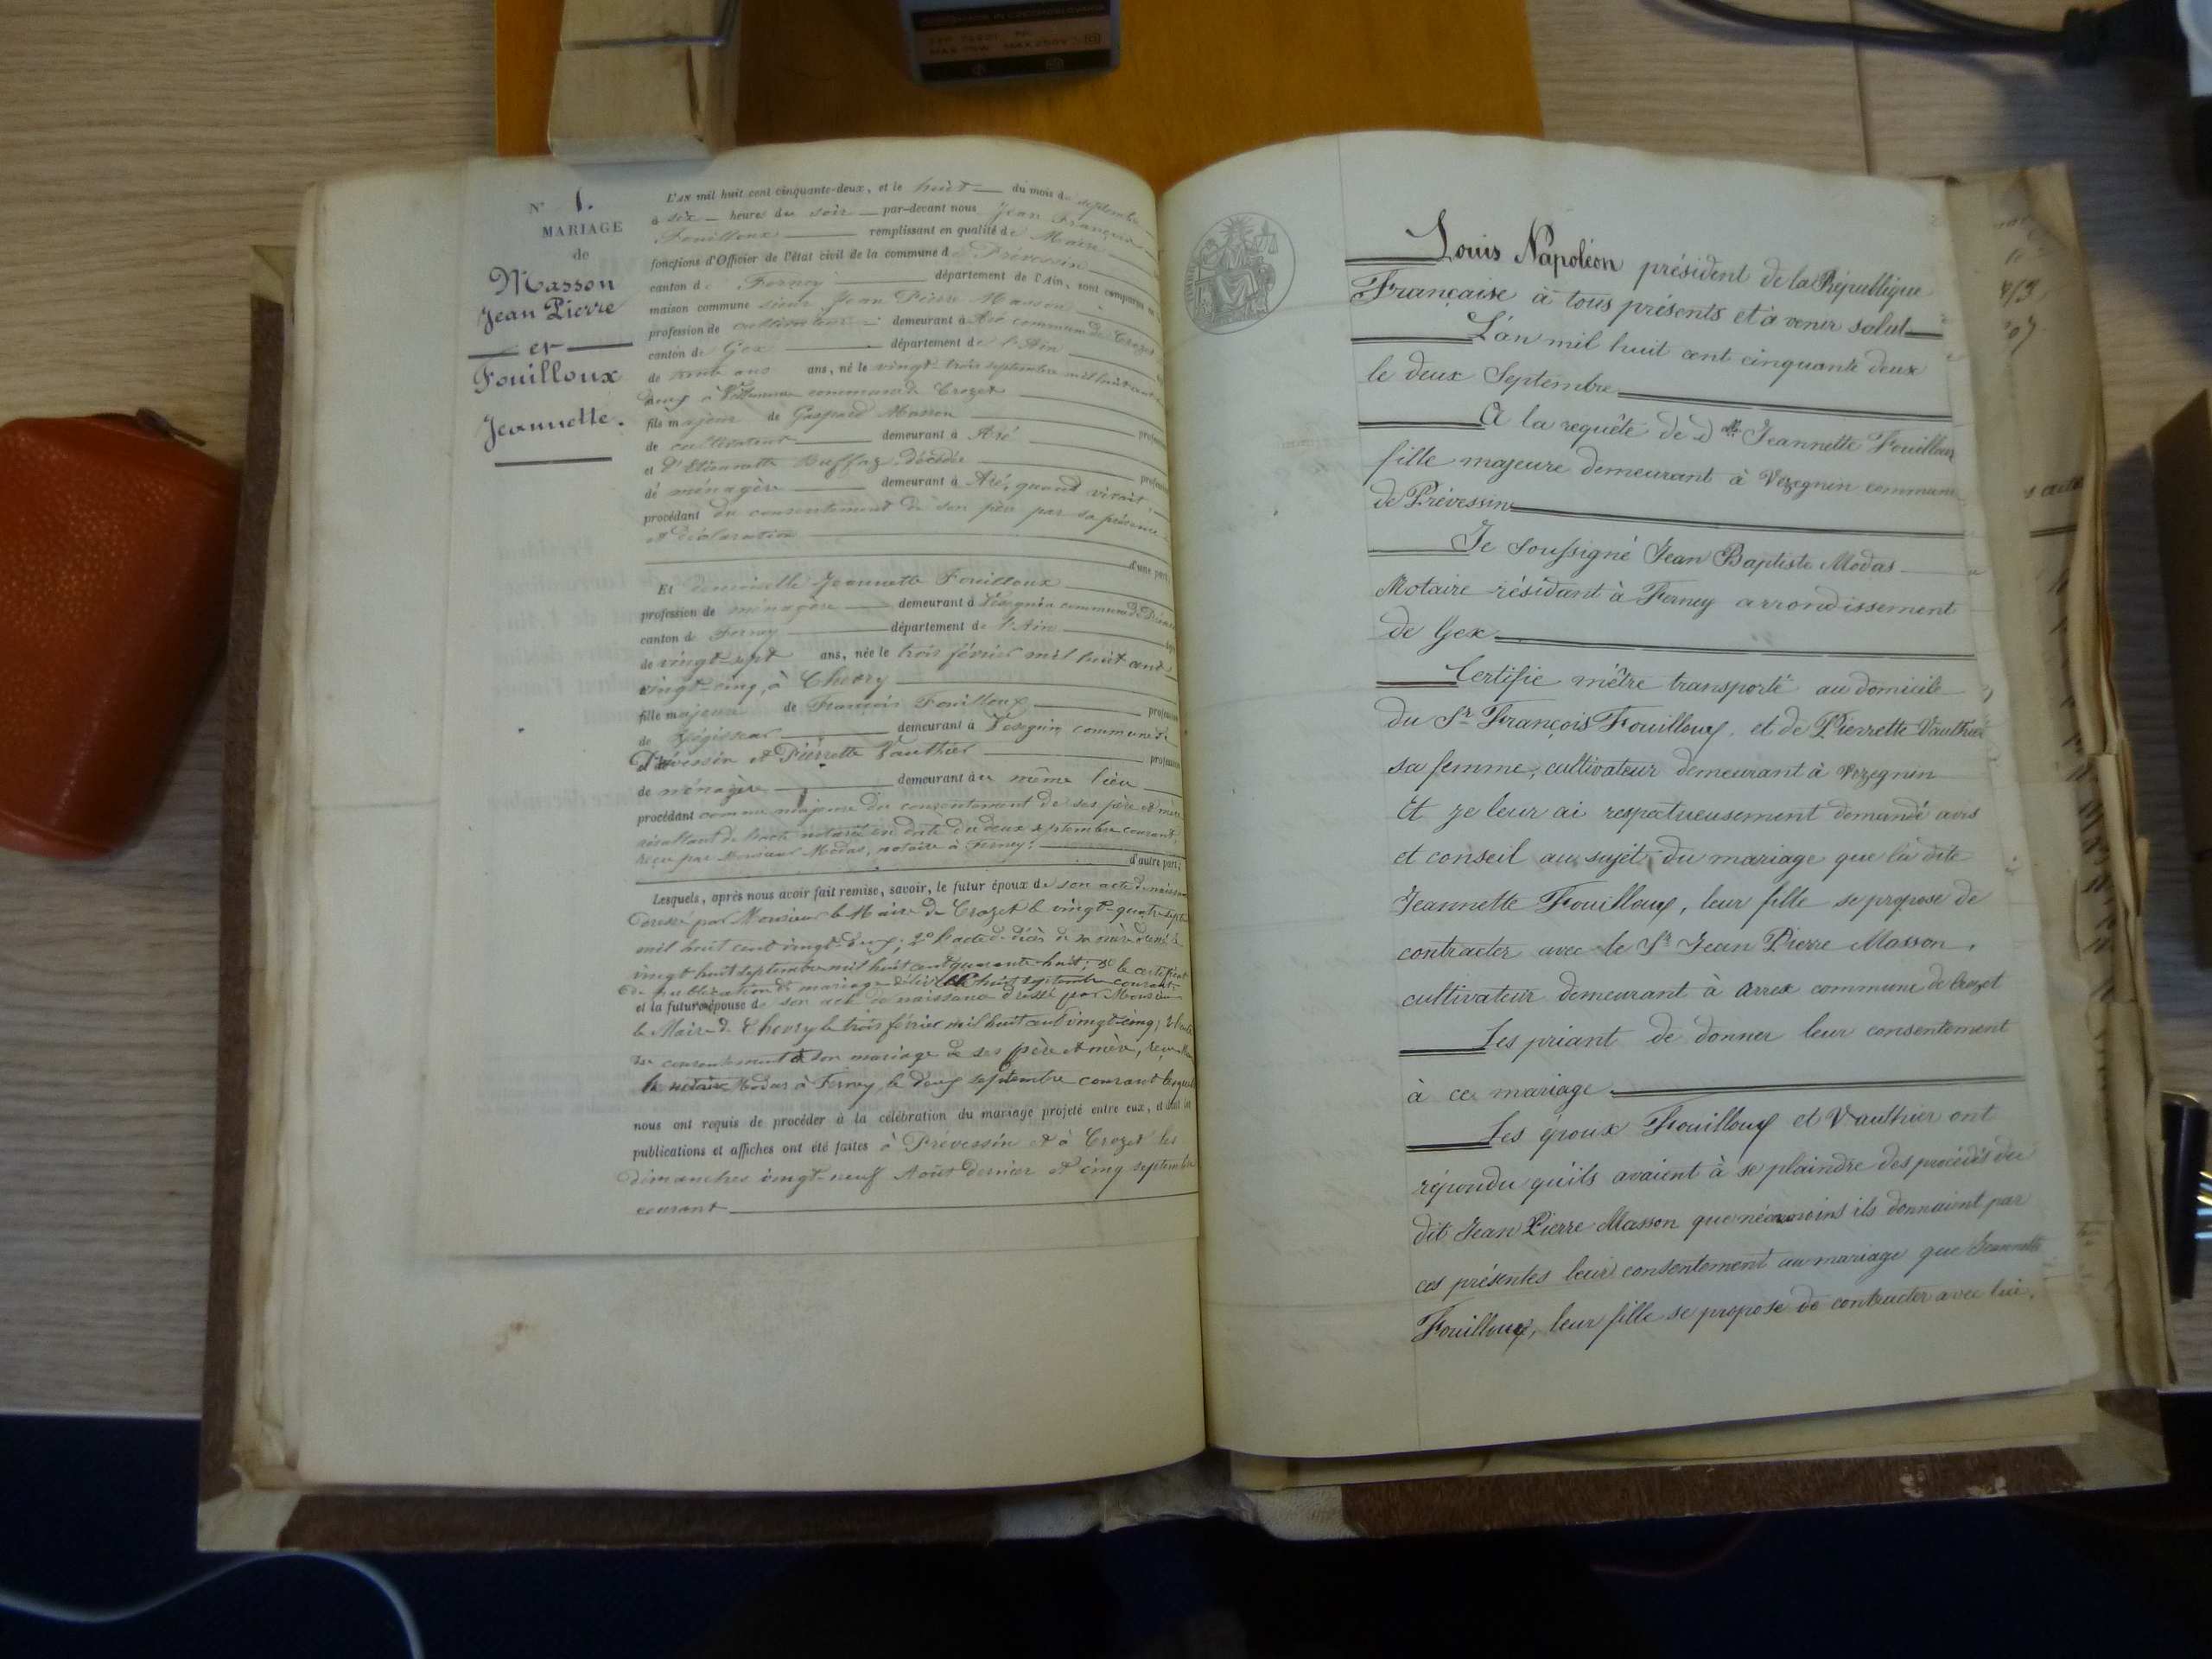 N° 1.
MARIAGE
de
Masson
Jean Pierre
et
Fouilloux
Jeannette.
L'AN mil huit cent cinquante-deux, et le huit du mois de septembre
à six heures du soir par-devant nous Jean François
Fouilloux remplissant en qualité de Maire
fonctions d'Officier de l'état civil de la commune de Prévessin
canton de Ferney département de l'Ain, sont comparus en
maison commune sieur Jean Pierre Masson
profession de cultivateur demeurant à Aré commune de Crozet
canton de Gex département de l'Ain
de trente ans ans, né le vingt-trois septembre mil huit cent
commune de Crozet
fils majeur de Gaspard Masson
de cultivateur demeurant à Aré
et d'Etiennette Buffaz, décédée
de ménagère demeurant à Aré, quand vivait,
procédant du consentement de son père par sa présence
et déclaration
d'une part;
Et demoiselle Jeannette Fouilloux
profession de ménagère demeurant à Vésegnin commune de
canton de Ferney département de l'Ain
de vingt-sept ans, née le trois février mil huit cent
vingt-cinq, à Chevry
fille majeure de François Fouilloux
de demeurant à Vesegnin commune de
Prévessin et Pierrette Vauthier
de ménagère demeurant au même lieu
procédant comme majeure du consentement de ses père et mère
résultant de l'acte notarié en date du deux septembre courant,
reçu par Monsieur Modas, notaire à Ferney.
d'autre part;
Lesquels, après nous avoir fait remise, savoir, le futur époux de son acte de naissance
dressé par Monsieur le Maire de Crozet le vingt-quatre
mil huit cent vingt-deux; 2° l'acte de décès de sa mère
vingt huit septembre mil huit cent quarante-huit; 3° le certificat
de publication de mariage délivré le huit septembre courant,
et la future épouse de son acte de naissance dressé par Monsieur
le Maire de Chevry le trois février mil huit cent vingt-cinq;
de consentement à son mariage de ses père et mère,
le notaire Modas à Ferney le deux septembre courant lesquels
nous ont requis de procéder à la célébration du mariage projeté entre eux, et dont les
publications et affiches ont été faites à Prévessin et à Crozet les
dimanches vingt-neuf Août dernier et cinq septembre
courant
Louis Napoléon président de la République
Française à tous présents et à venir salut
L'an mil huit cent cinquante deux
le deux Septembre
A la requête de Dlle Jeannette Fouilloux
fille majeure demeurant à Vezegnin commune
de Prévessin
Je soussigné Jean Baptiste Modas
Notaire résidant à Ferney arrondissement
de Gex
Certifie m'être transporté au domicile
du Sr François Fouilloux, et de Pierrette Vauthier
sa femme, cultivateur demeurant à Vezegnin
Et je leur ai respectueusement demandé avis
et conseil au sujet du mariage que la dite
Jeannette Fouilloux, leur fille se propose de
contracter avec le Sr Jean Pierre Masson,
cultivateur demeurant à Arrex commune de Crozet
Les priant de donner leur consentement
à ce mariage
Les époux Fouilloux et Vauthier ont
répondu qu'ils avaient à se plaindre des procédés du
dit Jean Pierre Masson que néanmoins ils donnaient par
ces présentes leur consentement au mariage que Jeannette
Fouilloux, leur fille se propose de contracter avec lui.